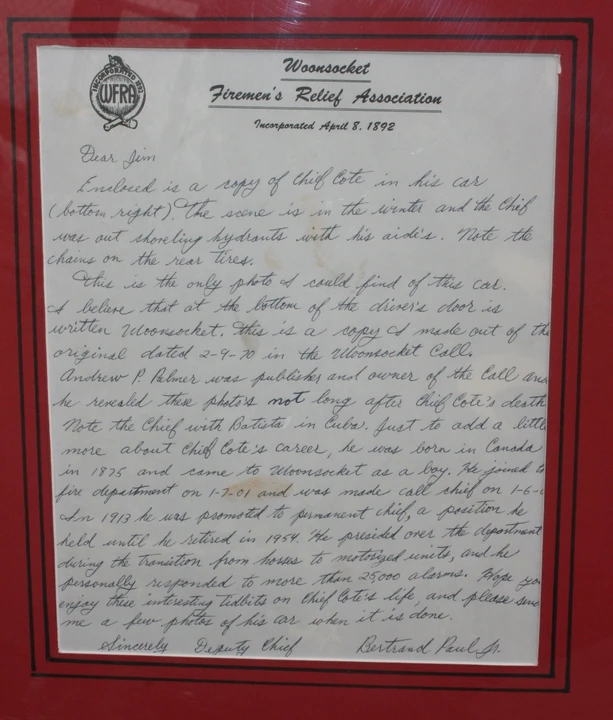 INCORPORATED 1892
WFRA
Woonsocket
Firemen's Relief Association
Incorporated April 8, 1892
Dear Jim
Enclosed is a copy of Chief Cote in his car
(bottom right). The scene is in the winter and the Chief
was out shoveling hydrants with his aide's. Note the
chains on the rear tires.
This is the only photo I could find of this car.
I believe that at the bottom of the driver's door is
written Woonsocket. This is a copy I made out of the
original dated 2-9-70 in the Woonsocket Call.
Andrew P. Palmer was publisher and owner of the Call and
he revealed these photo's not long after Chief Cote's death
Note the Chief with Batista in Cuba. Just to add a little
more about Chief Cote's career, he was born in Canada
in 1875 and came to Woonsocket as a boy. He joined
fire department on 1-7-01 and was made call chief on 1-6-
In 1913 he was promoted to permanent chief, a position he
held until he retired in 1954. He presided over the department
during the transition from horses to motorized units, and he
personally responded to more than 25,000 alarms. Hope you
enjoy these interesting tidbits on Chief Cote's life, and please
me a few photos of his car when it is done.
Sincerely Deputy Chief Bertrand Paul Jr.